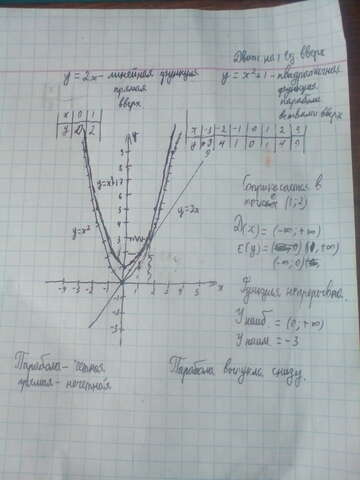 y = 2x - линейная функция
прямая
вверх
Движ на 1 ед вверх
y = x²+1 - квадратичная
функция
парабола
ветвями вверх
x 0 1
y 0 2
x -3 -2 -1 0 1 2 3
y 9 4 1 0 1 4 9
y=x²+1
y=x²
y=2x
-4 -3 -2 -1 0 1 2 3 4 5 6 x
в
точке (1;2)
D(x) = (-∞;+∞)
E(y) =
Функция непрерывна.
y наиб. = (0; +∞)
y наим = -3
Парабола - четная
прямая - нечетная
Парабола выпукла снизу.